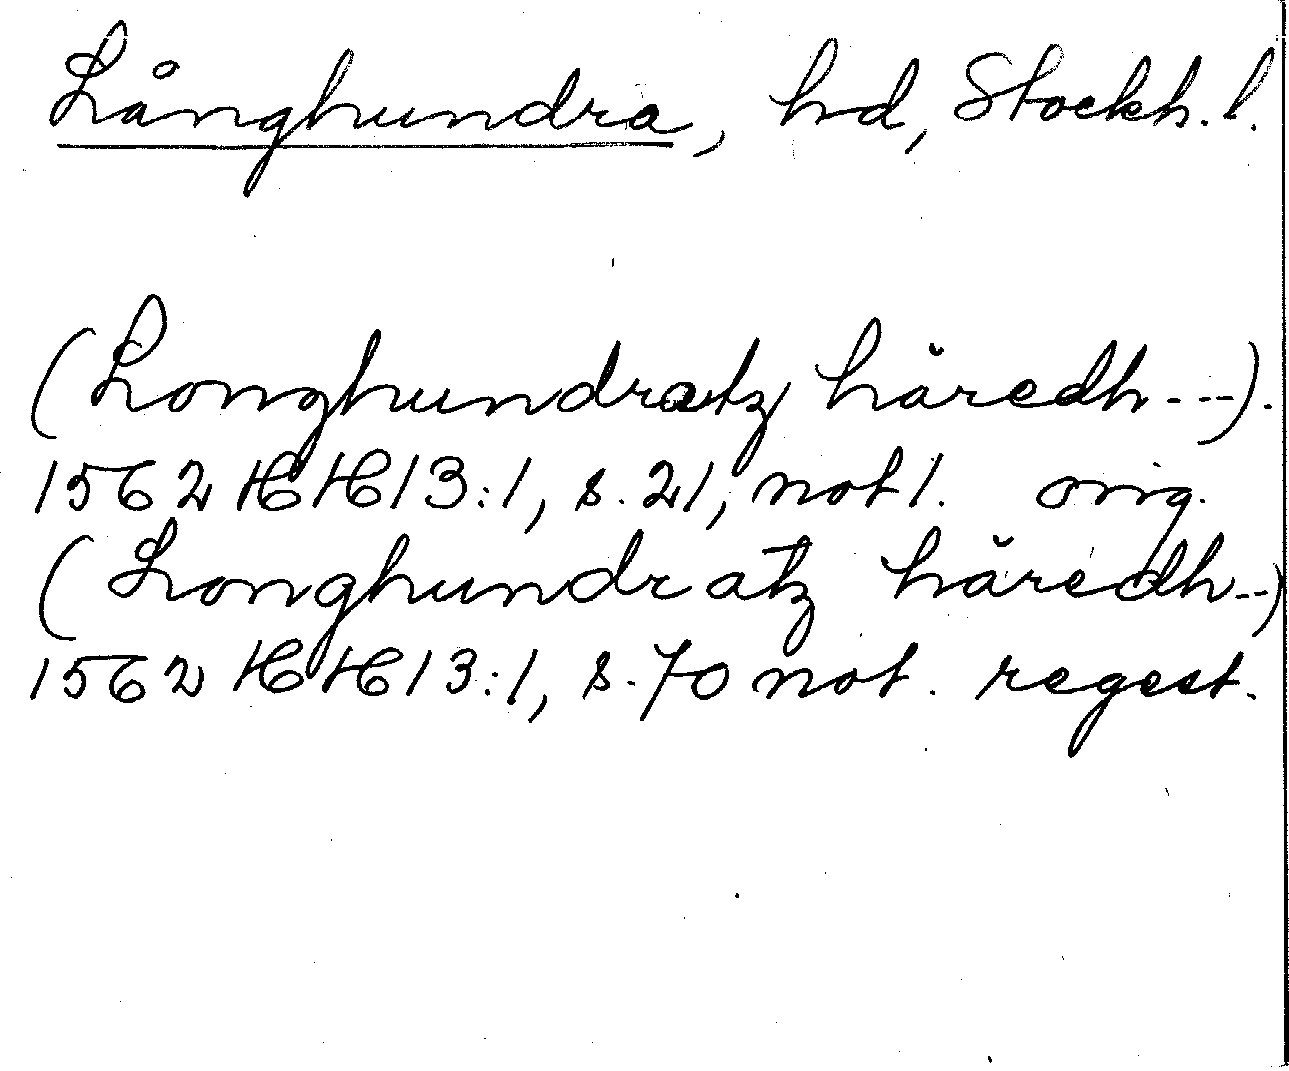 Långhundra, hd, Stockh. l.
(Longhundratz häredh---).
1562 HH 13:1, s. 21, not 1. orig.
(Longhundratz häredh--)
1562 HH 13:1, s. 70 not. regest.